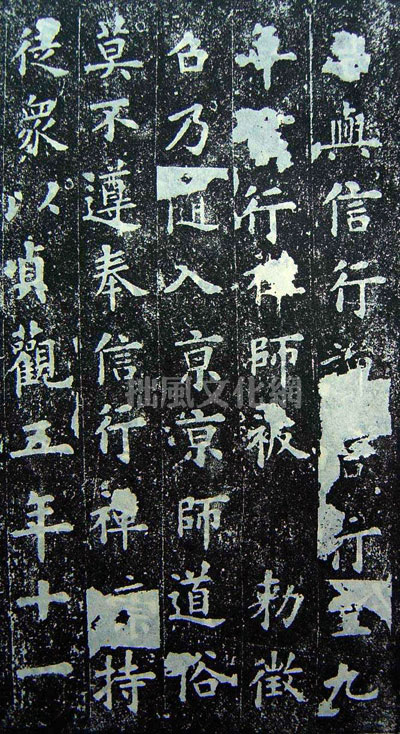 與信行行至九
年行禪師被勅徵
召乃入京京師道俗
莫不遵奉信行禪持
徒衆以貞觀五年十一
拙風文化網